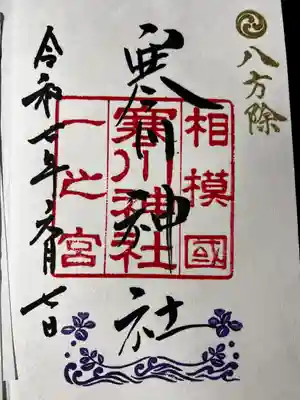 八方除
相模國
寒川神社
一之宮
寒川神社
令和七年六月七日